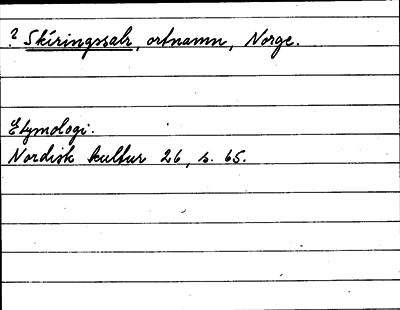 ? Skíringssalr, ortnamn, Norge.
Etymologi.
Nordisk kultur 26, s. 65.